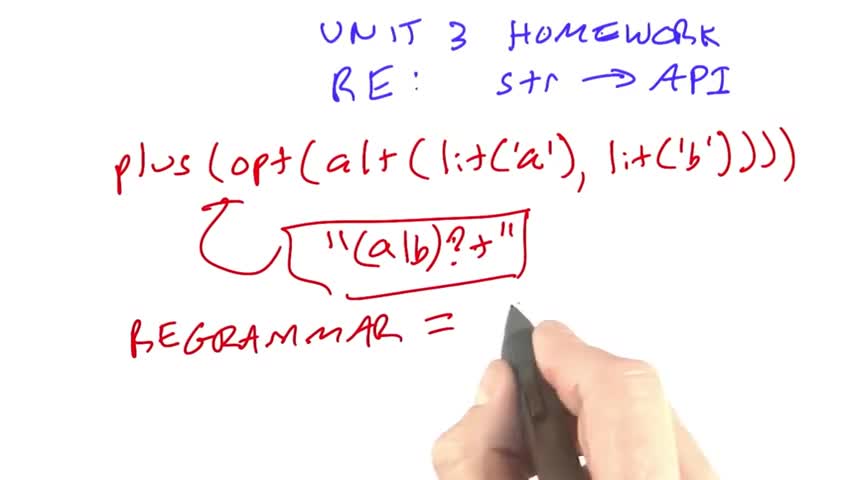 UNIT 3 HOMEWORK
RE: str → API
plus(opt(alt(lit('a'), lit('b'))))
"(a|b)?+"
REGRAMMAR =